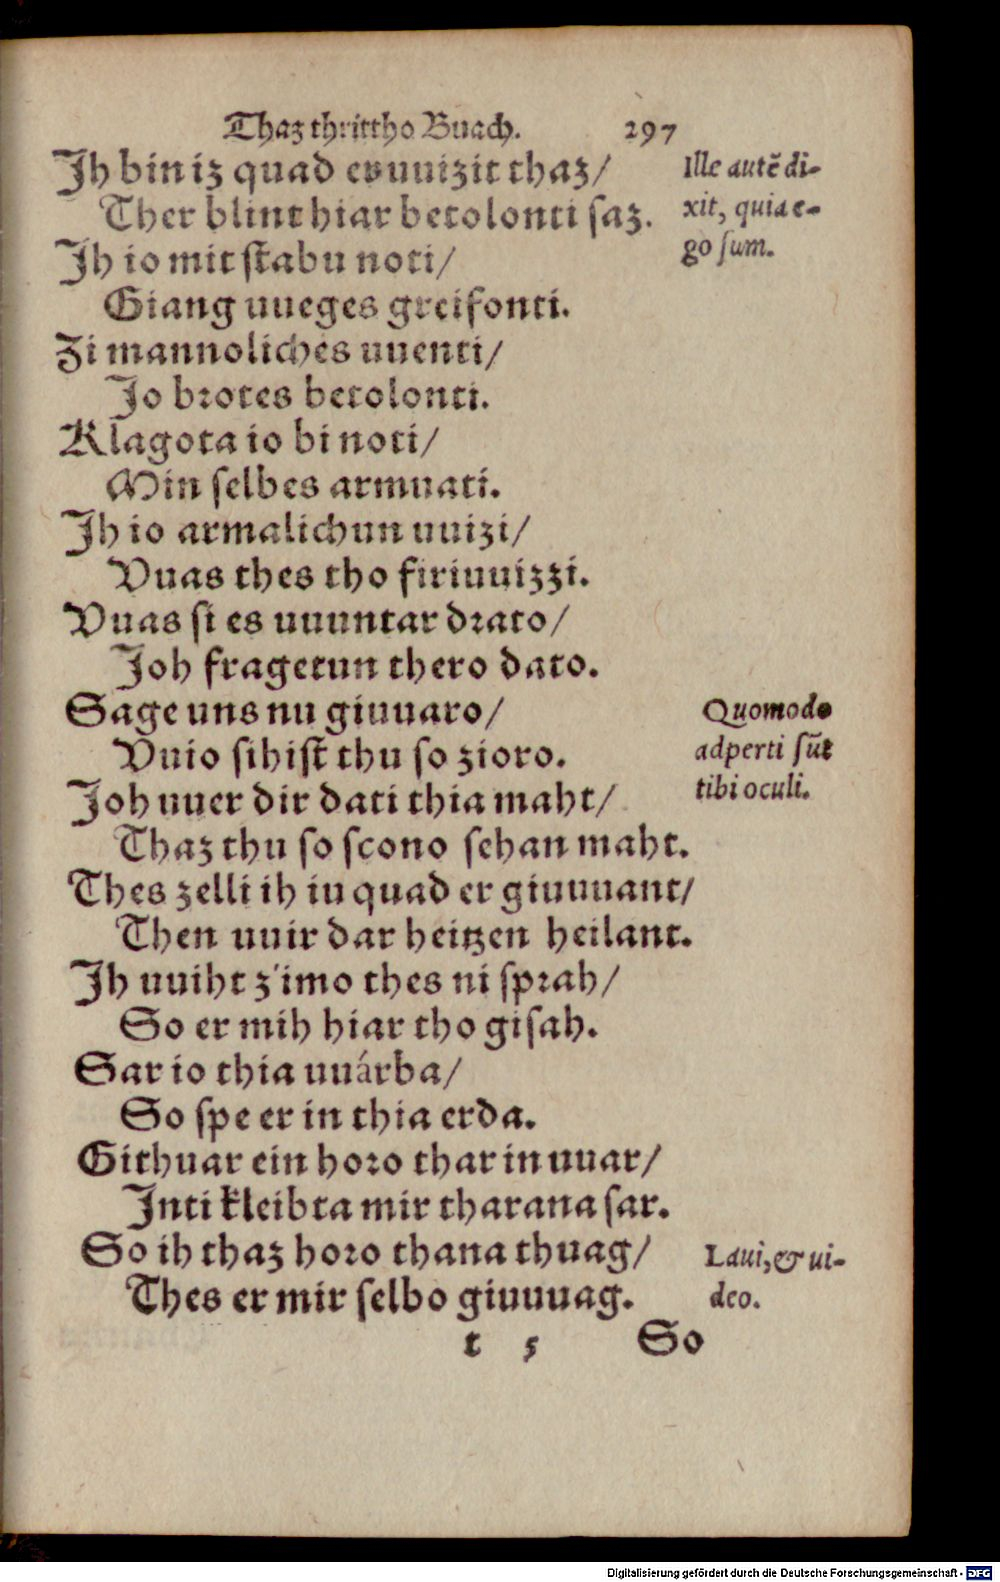 Thaz thrittho Buach. 297
Jh bin iz quad er uuizit thaz/
Ther blint hiar betolonti saz.
Jh io mit stabu noti/
Giang uueges greifonti.
Zi mannoliches uuenti/
Jo brotes betolonti.
Klagota io bi noti/
Min selbes armuati.
Jh io armalichun uuizi/
Vuas thes tho firiuuizzi.
Vuas si es uuuntar drato/
Joh fragetun thero dato.
Sage uns nu giuuaro/
Vuio sihist thu so zioro.
Joh uuer dir dati thia maht/
Thaz thu so scono sehan maht.
Thes zelli ih iu quad er giuuuant/
Then uuir dar heitzen heilant.
Jh uuiht z'imo thes ni sprah/
So er mih hiar tho gisah.
Sar io thia uuárba/
So spe er in thia erda.
Githuar ein horo thar in uuar/
Jnti kleibta mir tharana sar.
So ih thaz horo thana thuag/
Thes er mir selbo giuuuag.
t 5 So
Ille autē di-
xit, quia e-
go sum.
Quomodo
adperti sūt
tibi oculi.
Laui, & ui-
deo.
Digitalisierung gefördert durch die Deutsche Forschungsgemeinschaft - DFG